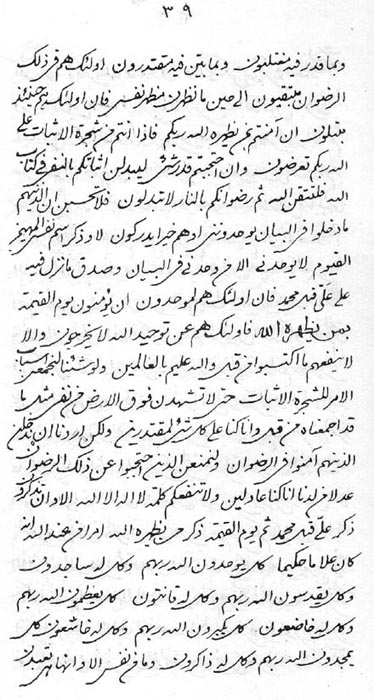 ٣٩
وبما قدر فيه متقلبون وبما بين فيه مقتدرون اولئك هم في ذلك
الرضوان متقيون الى حين ما نظرن منظهر نفسي فان اولئك هم حينئذ
مبتلون ان آمنتم بمن يظهره الله ربكم فاذا انتم من شجرة الاثبات على
الله ربكم تعرضون وان احتجبتم قدر شيء ليبدلن اثباتكم بالنفي في كتاب
الله فلتتقن الله ثم رضوانكم بالنار لا تبدلون فلا تحسبن ان الذينهم
ما دخلوا في البيان يوحدونني اذ هم خير ما يدركون لا وذكر اسم نفسي المهيمن
القيوم لا يوحدني الا من وحدني في البيان وصدق ما نزل فيه
على علي قبل محمد فان اولئك هم لموحدون ان يؤمنون يوم القيمة
بمن يظهره الله فاولئك هم عن توحيد الله لا يخرجون والا
لا ينفعهم ما اكتسبوا من قبل والله عليم بالعالمين ولو شئنا لنجمعن اسباب
الامر للشجرة الاثبات حتى لا تشهدن فوق الارض من نفس مثل ما
قد اجمعناه من قبل وانا كنا على كل شيء لمقتدرين ولكن اردنا ان ندخلن
الذينهم آمنوا في الرضوان ولنمنعن الذين احتجبوا عن ذلك الرضوان
عدلا من لدنا انا كنا عادلين ولا تنفعكم كلمة لا اله الا الله الا وان تدركون
ذكر علي قبل محمد ثم يوم القيمة ذكر من يظهره الله امرا من عند الله انه
كان علاما حكيما كل يوحدون الله ربهم وكل له ساجدون
وكل يقدسون الله ربهم وكل له قانتون كل يعظمون الله ربهم
وكل له خاضعون كل يكبرون الله ربهم وكل له خاشعون كل
يمجدون الله ربهم وكل له ذاكرون وما من نفس الا وانها لتعبدن